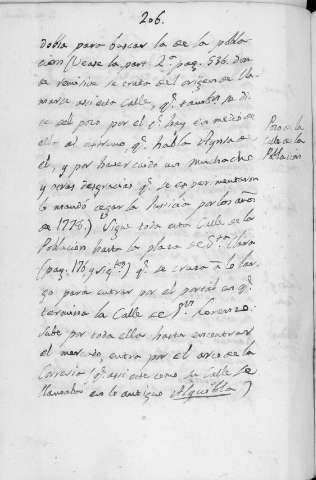 206.
dobla para buscar la de la pobla-
cion (Vease la part. 2ª pag. 536. don
de tambien se trata del origen de lla-
marse asi esta Calle, qᵉ tambn. se di
ce del pozo por el qᵉ hay en medio de
ella al extremo, qᵉ habla Aynsa de
él, y por haver caido un muchacho
y otras desgracias qᵉ se experimentaron
lo mandó cegar la Justicia por los años
de 1776.) Sigue toda esta Calle de la
Poblacion hasta la plaza de Sᵗᵃ Clara
(pag. 176 y sigᵗᵉˢ) qᵉ se cruza a lo lar-
go para entrar por el portal en qᵉ
termina la Calle de Sⁿ Lorenzo.
Sube por toda ella hasta encontrar
el mercado, entra por el arco de la
Correria (qᵉ asi este como su Calle se
llamaban en lo antiguo Alquibla)
Pozo de la
Calle de la
Poblacion